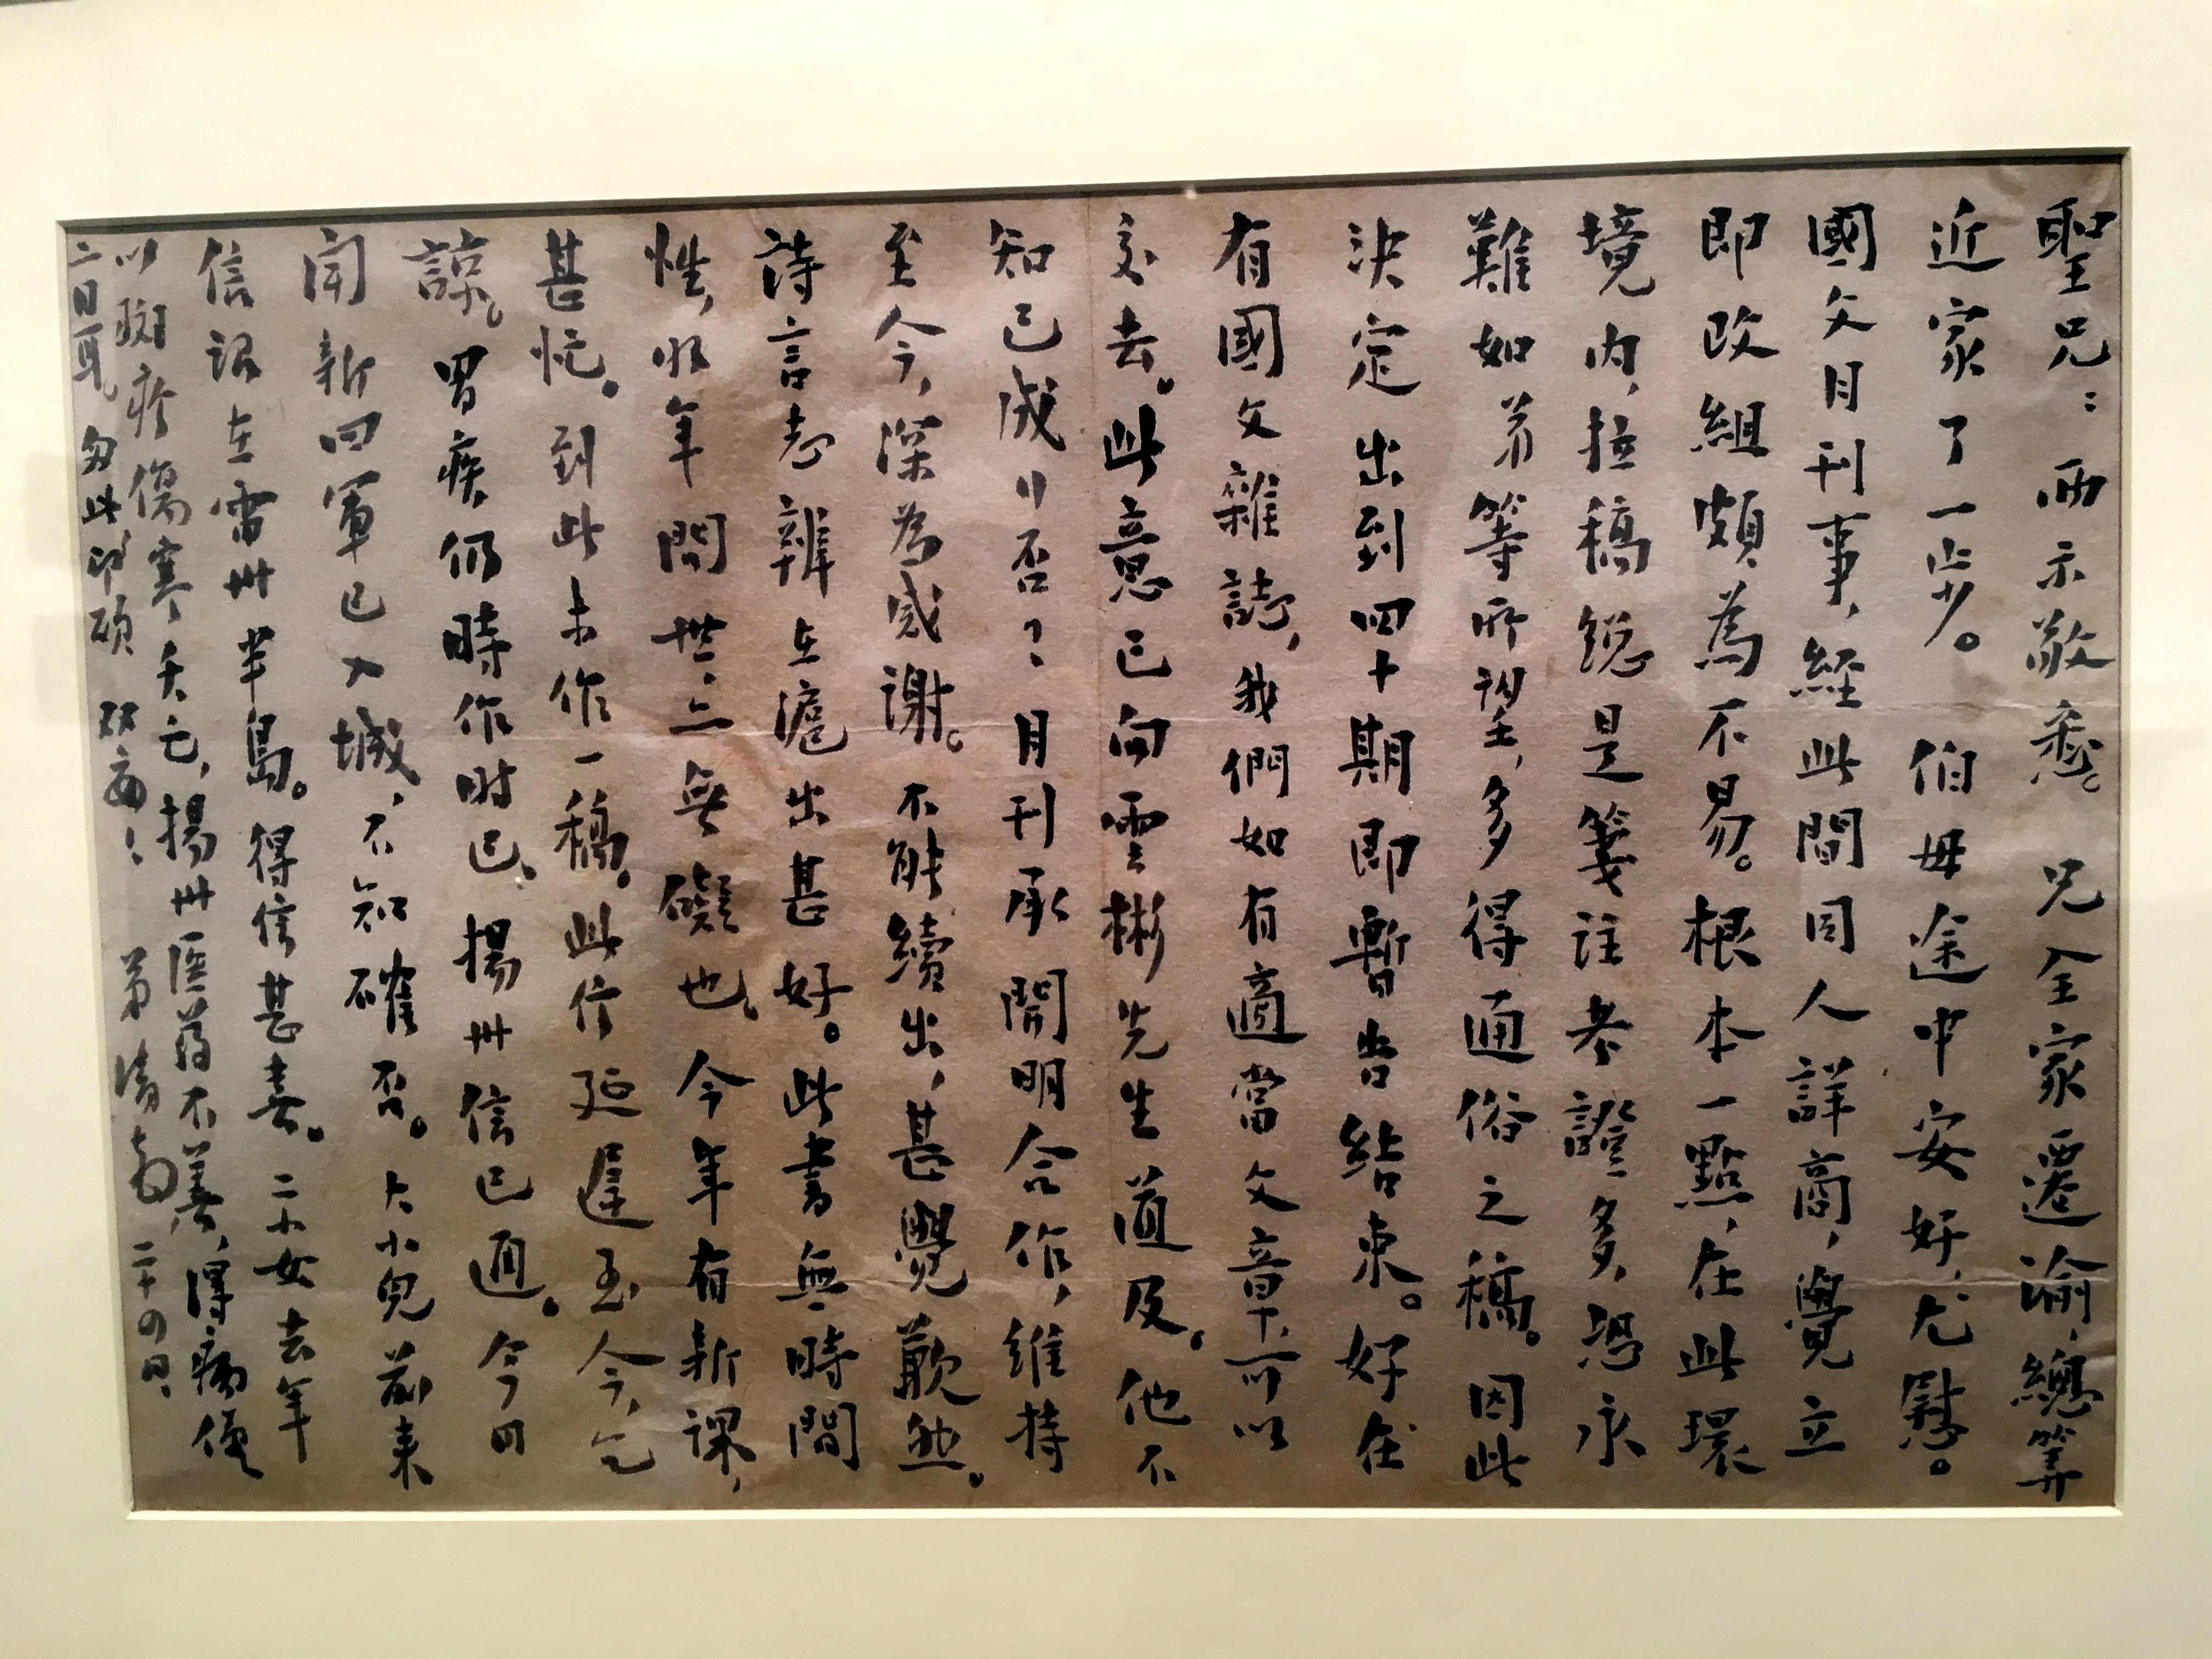 聖兄：兩示敬悉。兄全家遷渝，總算
近家了一步。伯母途中安好，尤慰。
國文月刊事，經此間同人詳商，覺立
即改組頗為不易。根本一點，在此環
境內，拉稿總是箋註考證多，恐永
難如弟等所望，多得通俗之稿。因此
決定出到四十期即暫告結束。好在
有國文雜誌，我們如有適當文章，可以
交去。此意已向雲彬先生道及。他不
知已成行否？月刊承開明合作，維持
至今，深為感謝。不能續出，甚覺歉然。
詩言志辨在滬出甚好。此書無時間
性，收年問世，亦無礙也。今年有新課，
甚忙。到此未作一稿。此信延遲至今，乞
諒。胃疾仍時作時已。揚州信已通。今日
聞新四軍已入城，不知確否。大小兒前來
信說在雷州半島。得信甚喜。二小女去年
以斑疹傷寒夭亡，揚州医药不善，得病僅
二日耳。匆此，即頌 双安！ 弟 清 二十四日